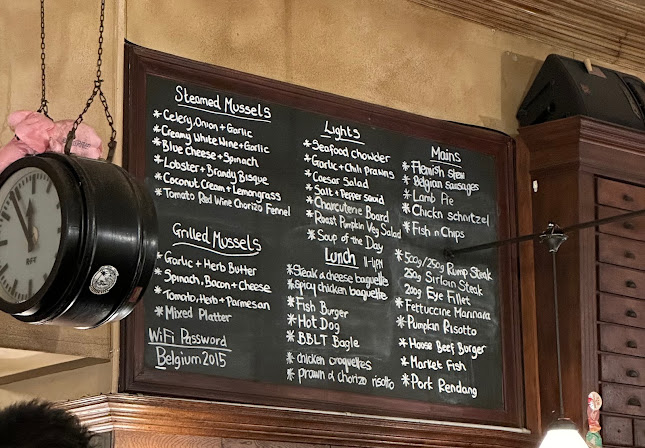 Steamed Mussels
* Celery, Onion + Garlic
* Creamy White Wine + Garlic
* Blue Cheese + Spinach
* Lobster + Brandy Bisque
* Coconut Cream + Lemongrass
* Tomato Red Wine Chorizo Fennel
Grilled Mussels
* Garlic + Herb Butter
* Spinach, Bacon + Cheese
* Tomato, Herb + Parmesan
* Mixed Platter
WiFi Password
Belgium 2015
Lights
* Seafood Chowder
* Garlic + Chili prawns
* Caesar Salad
* Salt + Pepper Squid
* Charcuterie Board
* Roast Pumpkin Veg Salad
* Soup of the Day
Lunch 11-4pm
* Steak & cheese baguette
* spicy chicken baguette
* Fish Burger
* Hot Dog
* BBLT Bagle
* chicken croquettes
* prawn & chorizo risotto
Mains
* Flemish stew
* Belgian Sausages
* Lamb Pie
* Chickn schnitzel
* Fish n Chips
* 500g/250g Rump Steak
250g Sirloin Steak
200g Eye Fillet
* Fettuccine Marinara
* Pumpkin Risotto
* House Beef Borger
* Market Fish
* Pork Rendang